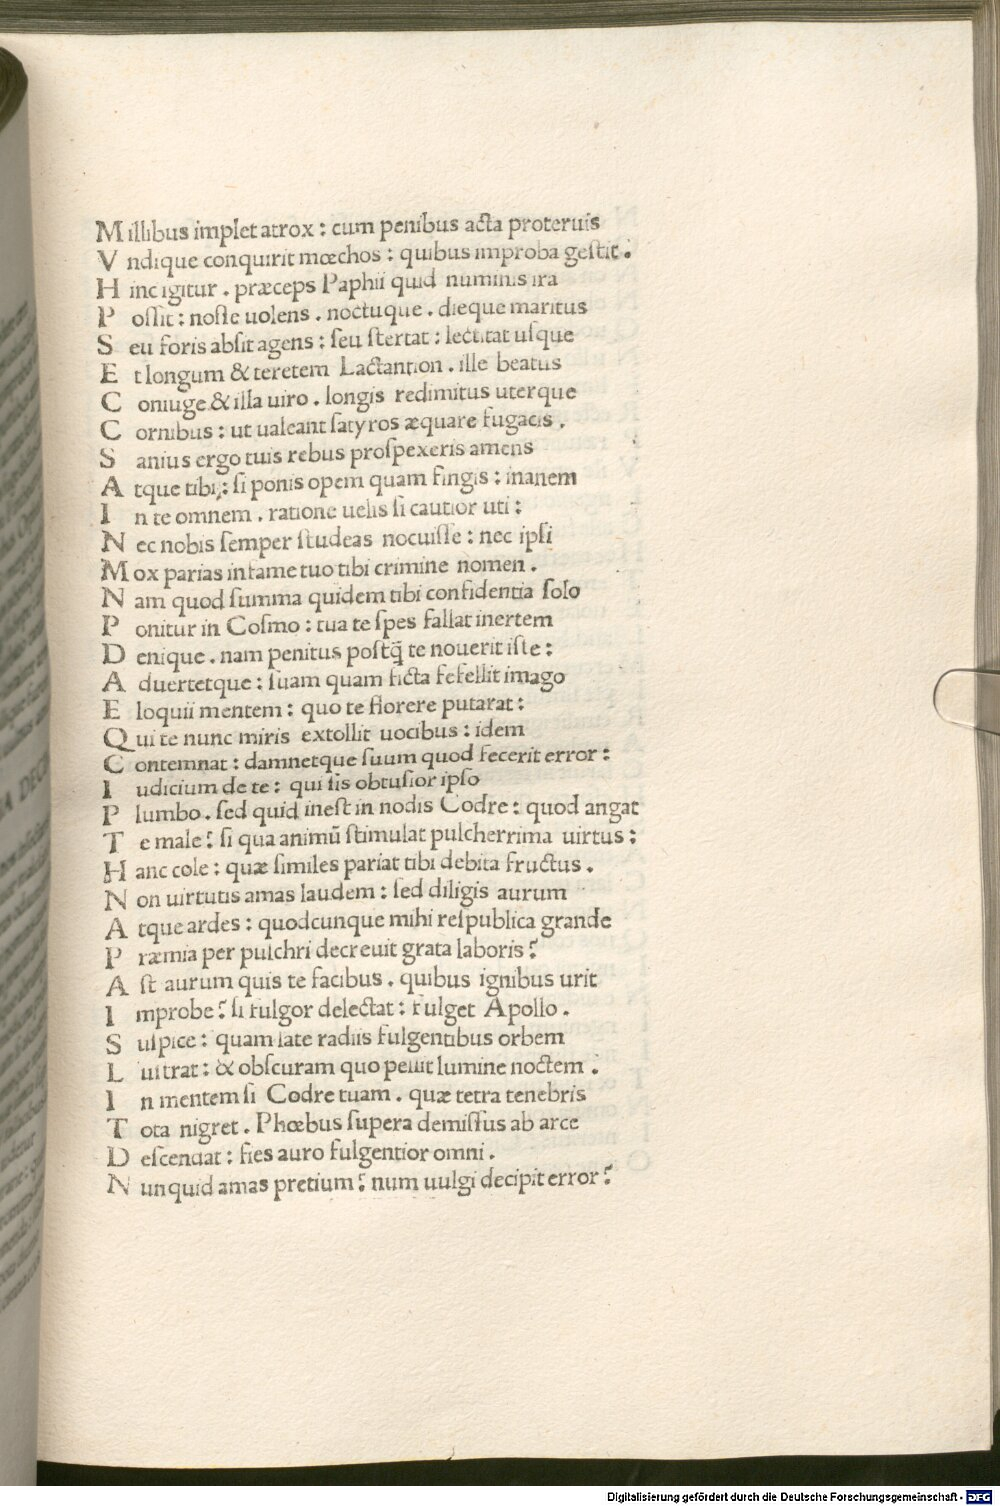 Millibus implet atrox : cum penibus acta proteruis
Vndique conquirit mœchos : quibus improba gestit .
Hinc igitur . præceps Paphii quid numinis ira
Possit : nosse uolens . noctuque . dieque maritus
Seu foris absit agens : seu stertat : lectitat usque
Et longum & teretem Lactantion . ille beatus
Coniuge & illa uiro . longis redimitus uterque
Cornibus : ut ualeant satyros æquare fugacis .
Sanius ergo tuis rebus prospexeris amens
Atque tibi : si ponis opem quam fingis : inanem
In te omnem . ratione uelis si cautior uti :
Nec nobis semper studeas nocuisse : nec ipsi
Mox parias infame tuo tibi crimine nomen .
Nam quod summa quidem tibi confidentia solo
Ponitur in Cosmo : tua te spes fallat inertem
Denique . nam penitus postq̃ te nouerit iste :
Aduertetque : suam quam ficta fefellit imago
Eloquii mentem : quo te florere putarat :
Qui te nunc miris extollit uocibus : idem
Contemnat : damnetque suum quod fecerit error :
Iudicium de te : qui sis obtusior ipso
Plumbo . sed quid inest in nodis Codre : quod angat
Te male ? si qua animũ stimulat pulcherrima uirtus :
Hanc cole : quæ similes pariat tibi debita fructus .
Non uirtutis amas laudem : sed diligis aurum
Atque ardes : quodcunque mihi respublica grande
Præmia per pulchri decreuit grata laboris ?
Ast aurum quis te facibus . quibus ignibus urit
Improbe ? si fulgor delectat : fulget Apollo .
Suspice : quam late radiis fulgentibus orbem
Lustrat : & obscuram quo pellit lumine noctem .
In mentem si Codre tuam . quæ tetra tenebris
Tota nigret . Phœbus supera demissus ab arce
Descendat : fies auro fulgentior omni .
Nunquid amas pretium ? num uulgi decipit error ?
Digitalisierung gefördert durch die Deutsche Forschungsgemeinschaft - DFG